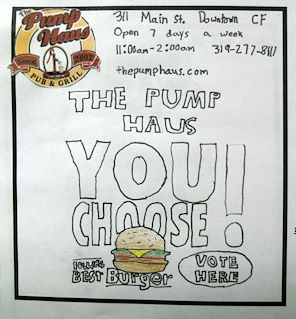 The
Pump
Haus
PUB & GRILL
311 Main St. Downtown CF
Open 7 days a week
11:00am-2:00am 319-277-8111
thepumphaus.com
THE PUMP
HAUS
YOU
CHOOSE!
BEST Burger
VOTE
HERE